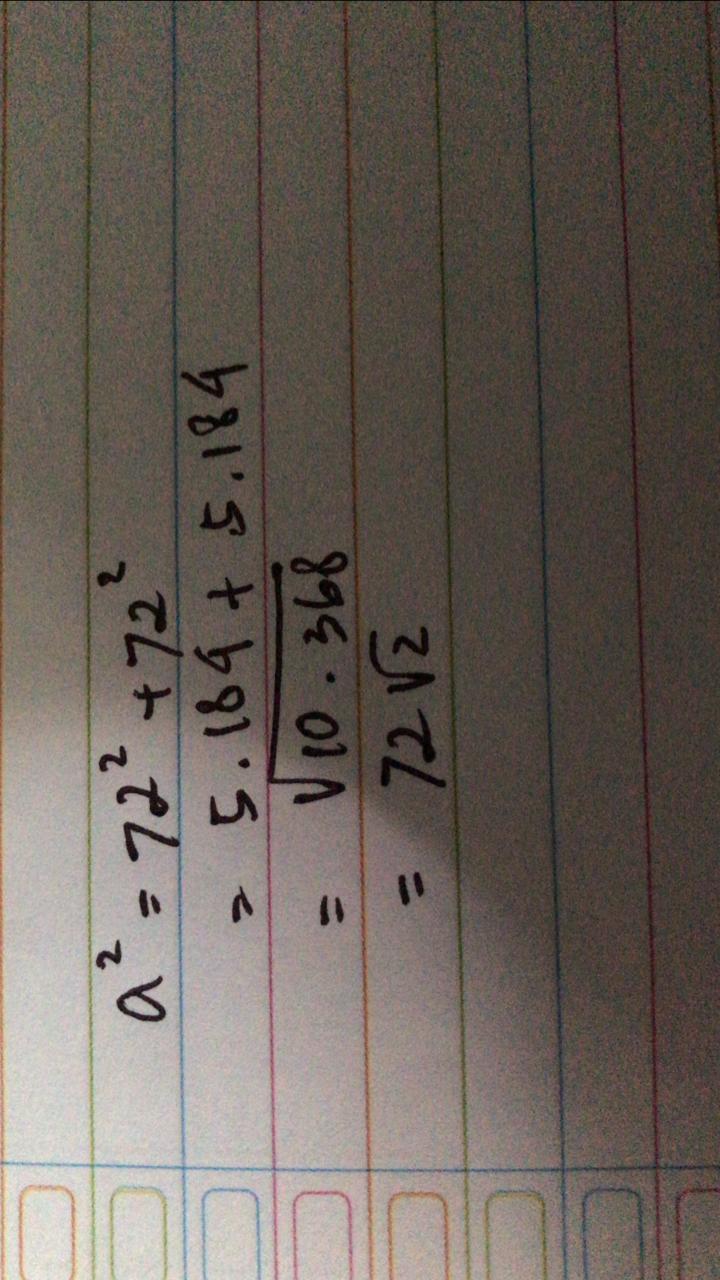 a² = 72² + 72²
= 5.184 + 5.184
= √10.368
= 72√2